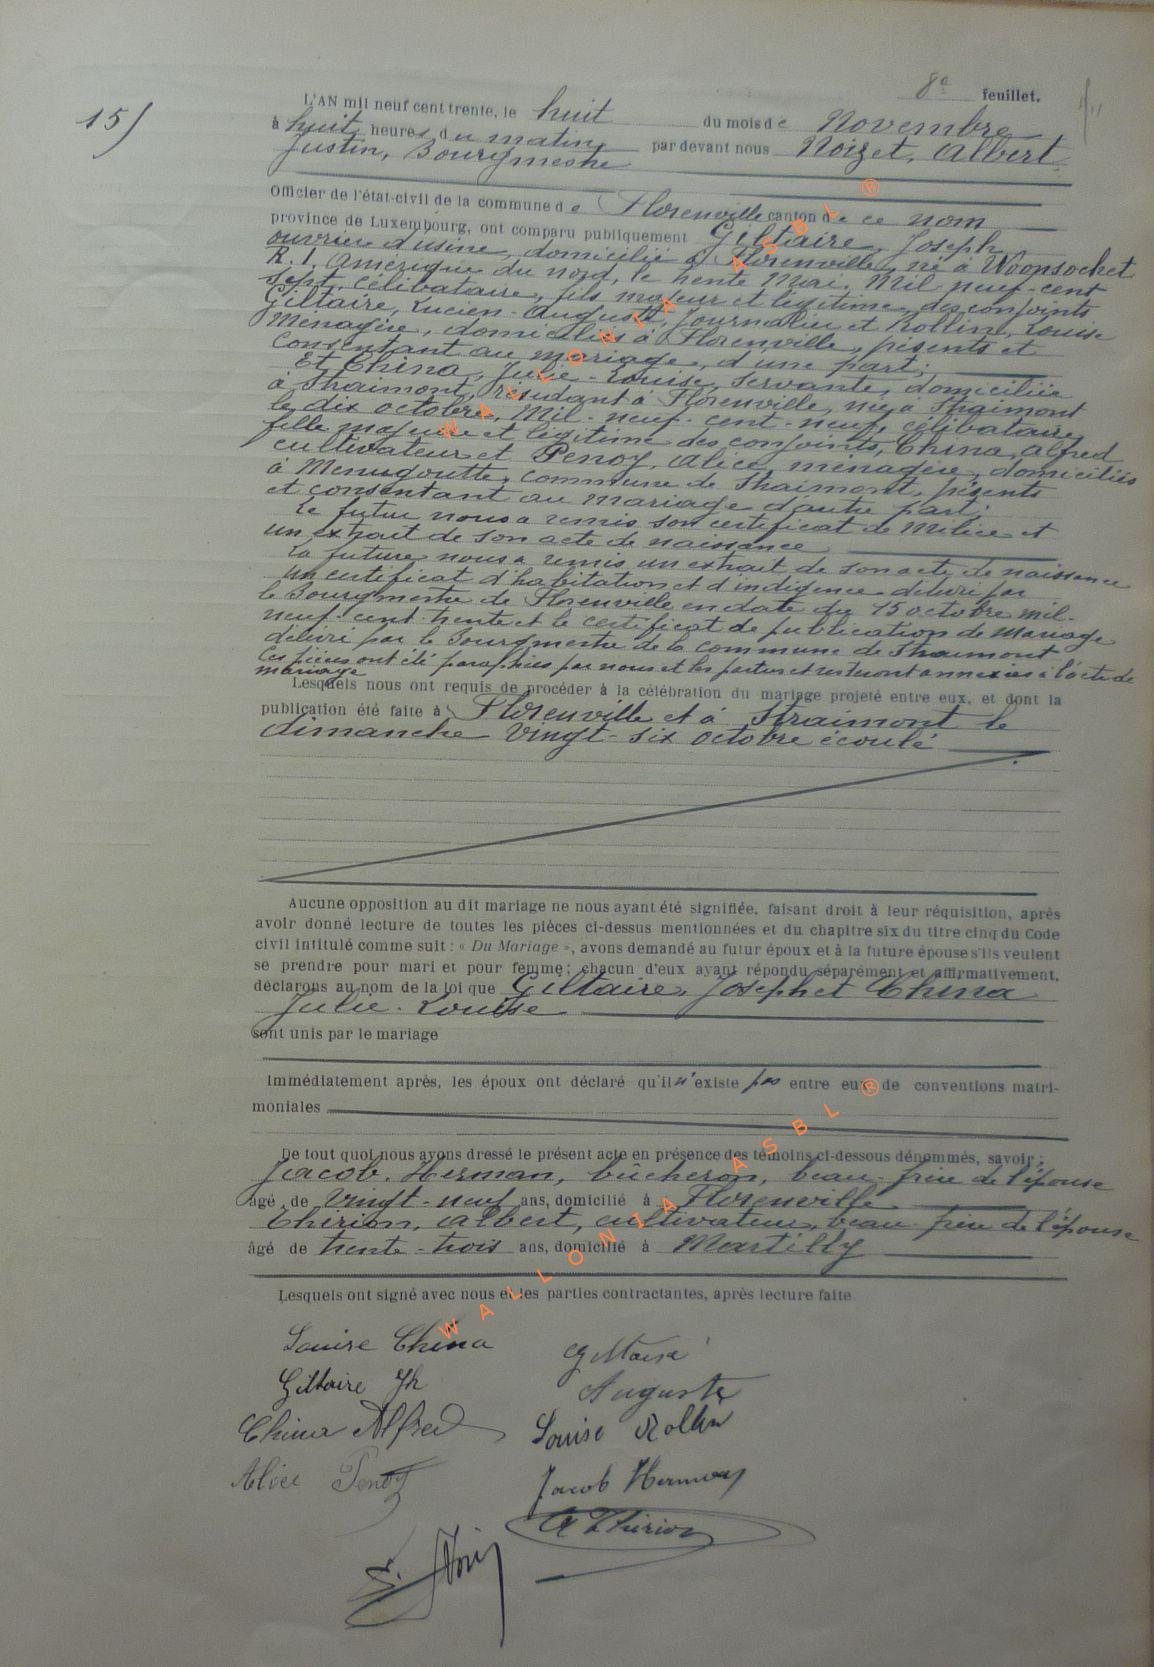 8e feuillet.
15)
L'AN mil neuf cent trente, le huit du mois de Novembre
à huit heures du matin par devant nous Noizet, Albert
Justin, Bourgmestre
Officier de l'état-civil de la commune de Florenville canton de ce nom
province de Luxembourg, ont comparu publiquement Giltaire, Joseph,
ouvrier d'usine, domicilié à Florenville, né à Woonsochet
R. I. Amérique du nord, le trente Mai, Mil neuf-cent
sept, célibataire, fils majeur et légitime des conjoints
Giltaire, Lucien-Auguste, Journalier et Rollin, Louise
Ménagère, domiciliés à Florenville, présents et
consentant au mariage, d'une part;
Et China, Julie-Louise, servante, domiciliée
à Straimont, résidant à Florenville, née à Straimont
le dix octobre, Mil-neuf-cent-neuf, célibataire,
fille majeure et légitime des conjoints, China, Alfred
cultivateur et Penoy, Alice, ménagère, domiciliés
à Menugoutte, commune de Straimont, présents
et consentant au mariage d'autre part;
Le futur nous a remis son certificat de Milice et
un extrait de son acte de naissance
La future nous a remis un extrait de son acte de naissance
un certificat d'habitation et d'indigence délivré par
le Bourgmestre de Florenville en date du 15 octobre mil-
neuf-cent-trente et le certificat de publication de Mariage
délivré par le Bourgmestre de la commune de Straimont
Ces pièces ont été paraphées par nous et les parties et resteront annexées à l'acte de
mariage
Lesquels nous ont requis de procéder à la célébration du mariage projeté entre eux, et dont la
publication été faite à Florenville et à Straimont le
dimanche vingt-six octobre écoulé
Aucune opposition au dit mariage ne nous ayant été signifiée, faisant droit à leur réquisition, après
avoir donné lecture de toutes les pièces ci-dessus mentionnées et du chapitre six du titre cinq du Code
civil intitulé comme suit : « Du Mariage », avons demandé au futur époux et à la future épouse s'ils veulent
se prendre pour mari et pour femme; chacun d'eux ayant répondu séparément et affirmativement,
déclarons au nom de la loi que Giltaire, Joseph et China
Julie-Louise
sont unis par le mariage
Immédiatement après, les époux ont déclaré qu'il n'existe pas entre eux de conventions matri-
moniales
De tout quoi nous avons dressé le présent acte en présence des témoins ci-dessous dénommés, savoir :
Jacob, Herman, bûcheron, beau-frère de l'épouse
âgé de vingt-neuf ans, domicilié à Florenville
Thirion, Albert, cultivateur, beau-frère de l'épouse
âgé de trente-trois ans, domicilié à Martilly
Lesquels ont signé avec nous et les parties contractantes, après lecture faite
Louise China
Giltaire Jh
China Alfred
Alice Penoy
Giltaire
Auguste
Louise Rollin
Jacob Herman
A Thirion
WALLONIA ASBL ®
WALLONIA ASBL ®